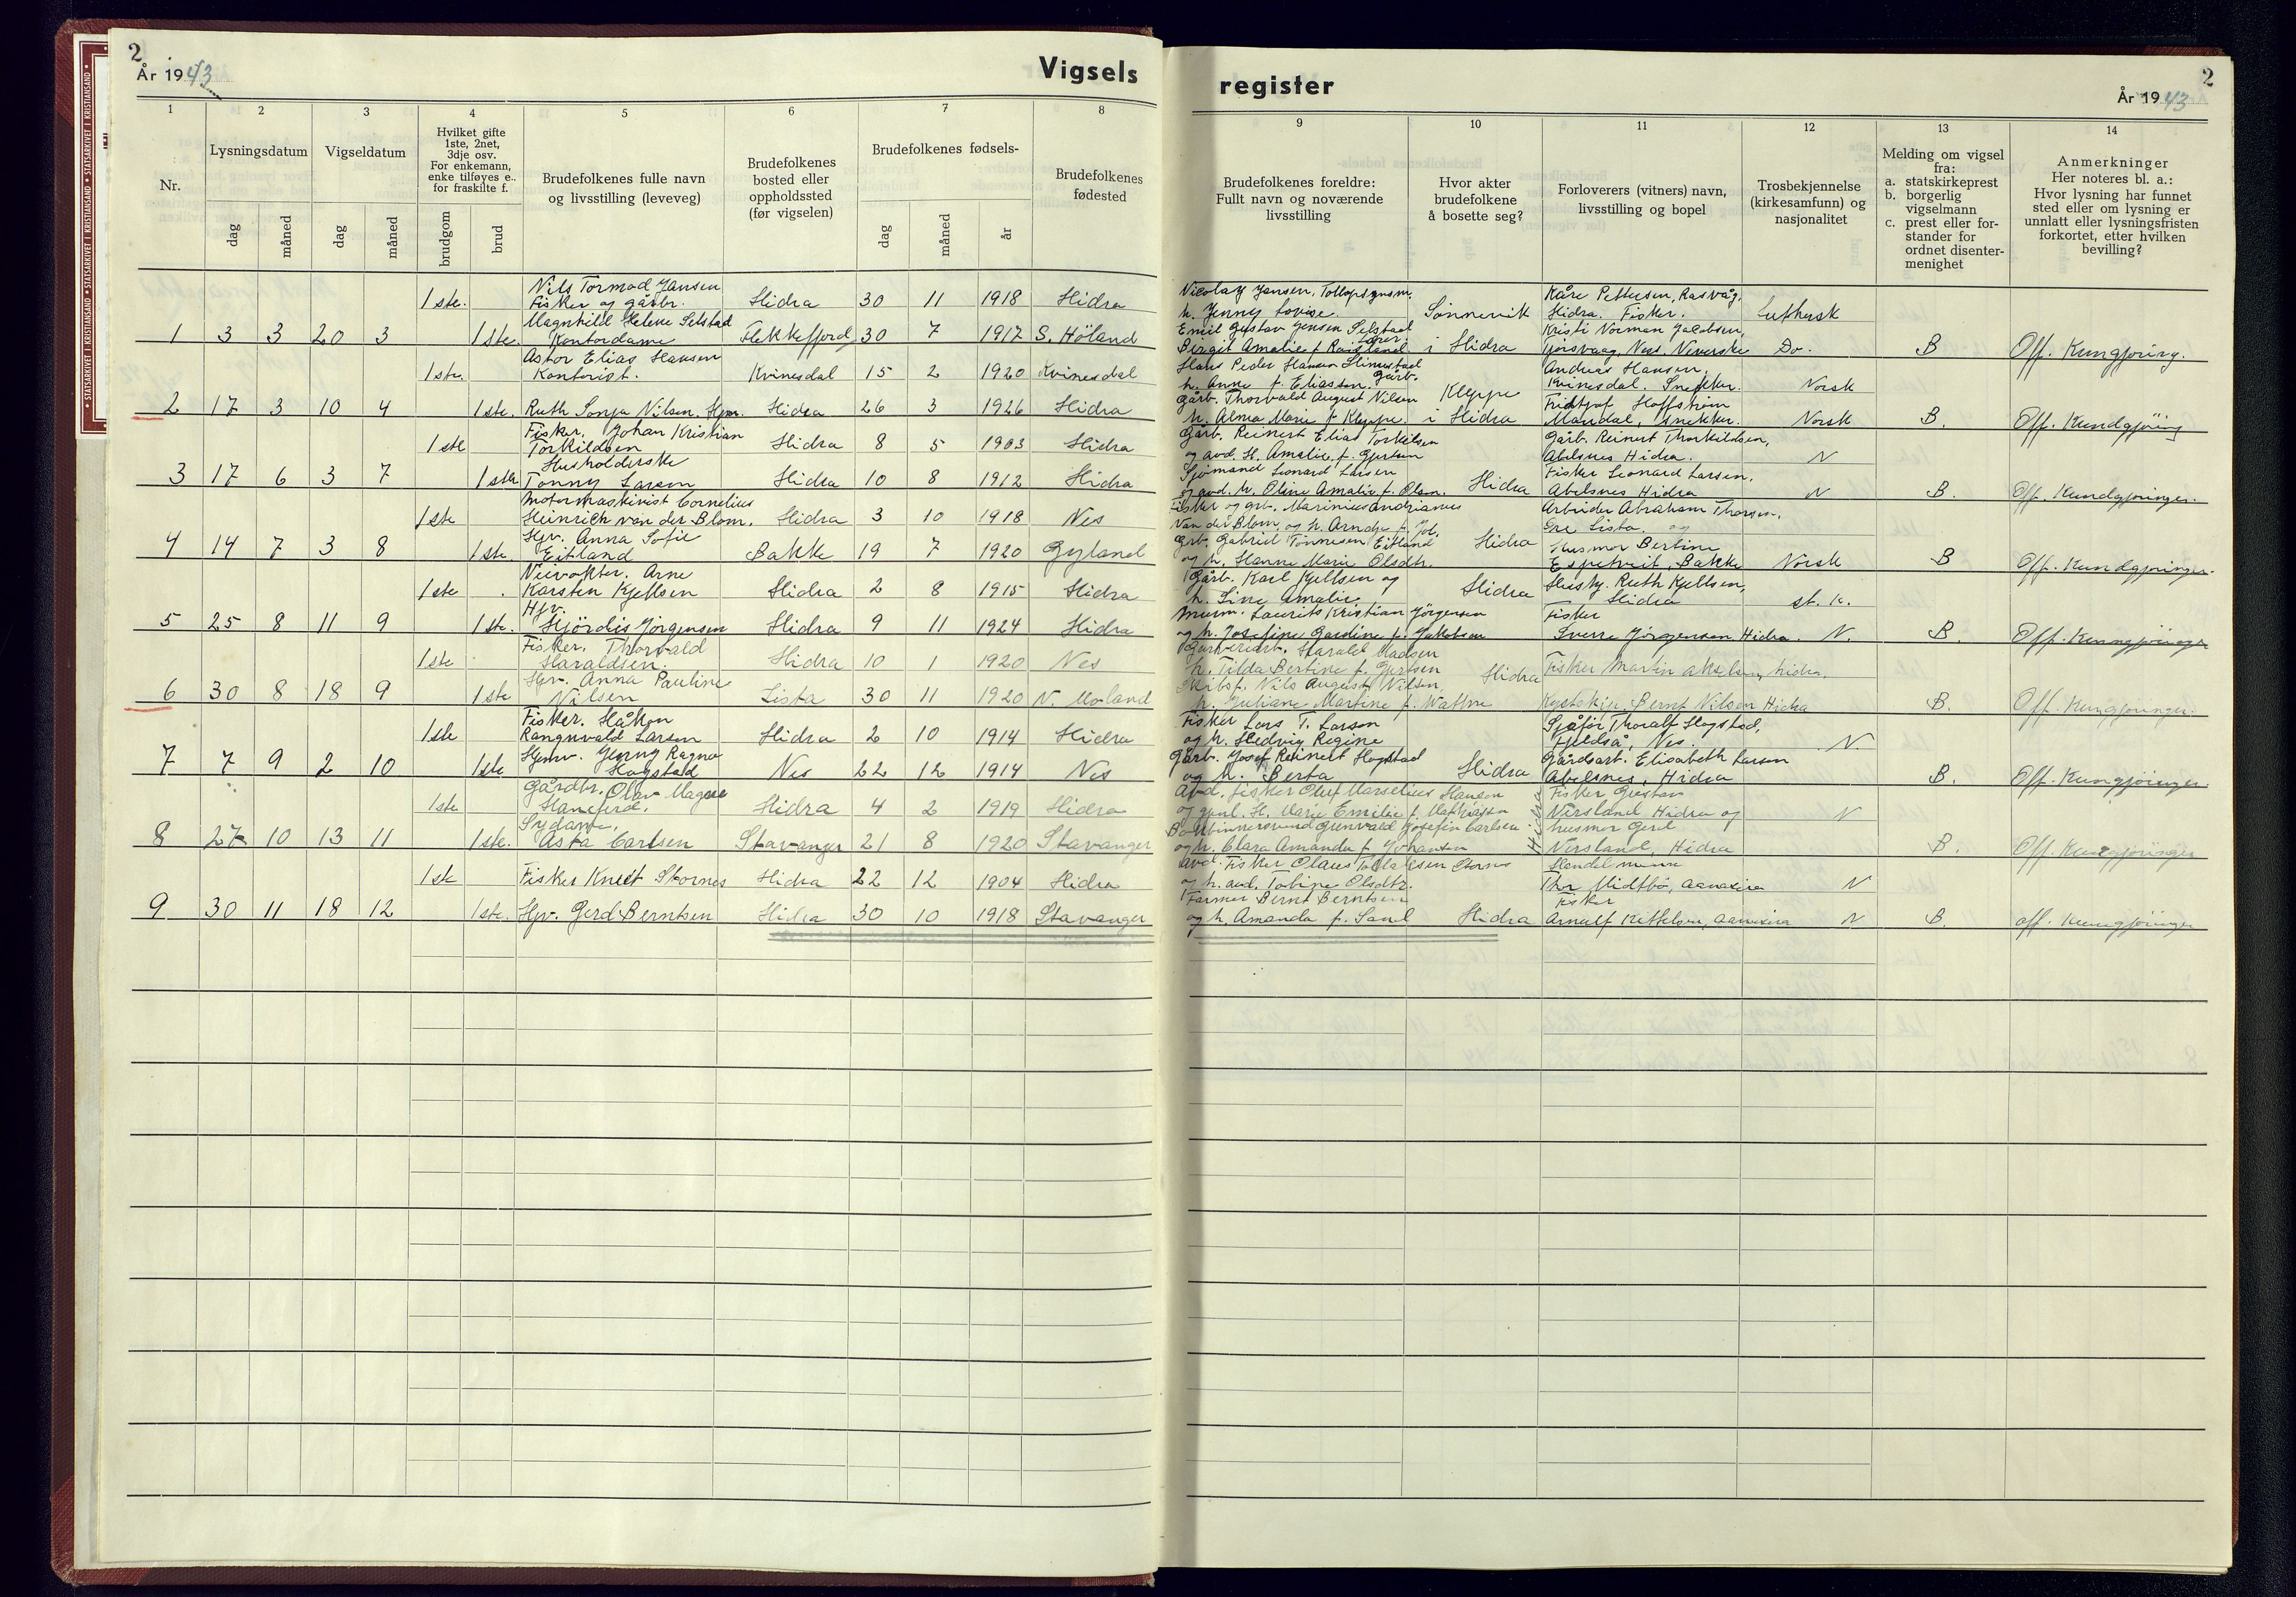 2
År 1943
Vigsels
register
2
År 1943
STATSARKIVET I KRISTIANSAND • STATSARKIVET I KRISTIANSAND • STATSARKIVET I KRISTIANSAND
1 2 3 4 5 6 7 8
Nr.
Lysningsdatum
dag måned
Vigseldatum
dag måned
Hvilket gifte
1ste, 2net,
3dje osv.
For enkemann,
enke tilføyes e..
for fraskilte f.
brudgom brud
Brudefolkenes fulle navn
og livsstilling (leveveg)
Brudefolkenes
bosted eller
oppholdssted
(før vigselen)
Brudefolkenes fødsels-
dag måned år
Brudefolkenes
fødested
9 10 11 12 13 14
Brudefolkenes foreldre:
Fullt navn og noværende
livsstilling
Hvor akter
brudefolkene
å bosette seg?
Forloverers (vitners) navn,
livsstilling og bopel
Trosbekjennelse
(kirkesamfunn) og
nasjonalitet
Melding om vigsel
fra:
a. statskirkeprest
b. borgerlig
vigselmann
c. prest eller for-
stander for
ordnet disenter-
menighet
Anmerkninger
Her noteres bl. a.:
Hvor lysning har funnet
sted eller om lysning er
unnlatt eller lysningsfristen
forkortet, etter hvilken
bevilling?
Nils Tormod Jansen
1ste. Fisker og gårbr. Hidra 30 11 1918 Hidra
Magnhild Helene Selstad
1 3 3 20 3 1ste. Kontordame Flekkefjord 30 7 1917 S. Höland
Astor Elias Hansen
1ste. Kontorist. Kvinesdal 15 2 1920 Kvinesdal
2 17 3 10 4 1ste. Ruth Sonja Nilsen. Hjm. Hidra 26 3 1926 Hidra
Fisker. Johan Kristian
1ste Torkildsen Hidra 8 5 1903 Hidra
Husholderske
3 17 6 3 7 1ste Tonny Larsen Hidra 10 8 1912 Hidra
Motormaskinist Cornelius
1ste Heinrich van der Blom. Hidra 3 10 1918 Nes
Hjv. Anna Sofie
4 14 7 3 8 1ste. Eitland Bakke 19 7 1920 Gyland
Arne
1ste Karsten Kjellsen Hidra 2 8 1915 Hidra
Hjv.
5 25 8 11 9 1ste. Hjördis Jörgensen Hidra 9 11 1924 Hidra
Fisker. Thorvald
1ste Haraldsen. Hidra 10 1 1920 Nes
Hjv. Anna Pauline
6 30 8 18 9 1ste Nilsen Lista 30 11 1920
Fisker. Håkon
1ste Rangnvald Larsen Hidra 2 10 1914 Hidra
Hjemv. Jenny Ragna
7 7 9 2 10 1ste Hogstad Nes 22 12 1914 Nes
Gårdbr. Olav Magne
1ste Hidra 4 2 1919 Hidra
Sydame.
8 27 10 13 11 1ste. Asta Carlsen Stavanger 21 8 1920 Stavanger
1ste Fisker Knut Stornes Hidra 22 12 1904 Hidra
9 30 11 18 12 1ste. Hjv. Gerd Berntsen Hidra 30 10 1918 Stavanger
Nicolay Jansen, Kåre Pettersen, Rasvåg,
h. Jenny Lovise. Sönnervik Hidra. Fisker. Luthersk
Emil Gustav Jensen Selstad Kristi Norman Jacobsen,
Birgit Amalie f. i Hidra Nes. Do. B Off. Kungjöring.
Hans Peder Hansen Andreas Hansen,
h. Anne f. Eliassen. Kvinesdal. Snekker. Norsk
Gårb. Thorvald August Nilsen Kleppe Fridtjof Hoffström
h. Alma Marie f. Kleppe. i Hidra Mandal, Snekker. Norsk B. Off. Kundgjöring
Gårb. Reinert Elias Torkilsen Gårb. Reinert Thorkildsen,
og avd. H. Amalie, f. Gjertsen Abelsnes Hidra. N
Sjömand Leonard Larsen Fisker Leonard Larsen,
og avd. h. Oline Amalie f. Olsen. Hidra Abelsnes Hidra N B. Off. Kundgjöringer.
Fisker og grb. Marinius Andrianus Arbeider Abraham Thorsen,
Van der Blom, og h. Arndse f. Lista. og
Grb. Gabriel Tönnesen Eitland Hidra Husmor Bertine
og h. Hanne Marie Olsdtr. Espetveit, Bakke Norsk B Off. Kundgjöringer.
Gårb. Karl Kjellsen og Hidra Ruth Kjellsen,
h. Line Amalie Hidra st. k.
Murm. Laurits Kristian Jörgensen Fisker
og h. Josefine Gardine f. Jakobsen Sverre Jörgensen Hidra. N. B. Off. Kungjöringer
Harald Madsen
h. Tilda Bertine f. Gjertsen Hidra Fisker Martin Akselsen, Hidra.
Nils August Nilsen,
h. Juliane Martine f. Wattne Bernt Nilsen Hidra B. Off. Kungjöringer.
Fisker Lars T. Larsen Sjåför Thoralf Hogstad,
og h. Hedvig Regine Fjeldså, Nes. N.
Gårb. Josef Reinert Hogstad Gårdsarb. Elisabeth Larsen
og h. Berta Hidra Abelsnes, Hidra B. Off. Kungjöringer.
Avd. fisker Oluf Marselius Hansen Fisker Gustav
Marie Emilie f. Mathiassen Hidra Nersland Hidra og N
Grunvald Josefin Carlsen husmor Gerd
og h. Clara Amanda f. Johansen Nersland, Hidra B. Off. Kungjöringer
Avd. Fisker Olaus Stornes Handelsmann
og h. avd. Tobine Olsdtr. Thv Midtbö, Aanasira N
Farmer Bernt Berntsen Fisker
og h. Amanda f. Hidra Arnulf Kettelsen, Aanasira N B. Off. Kungjöringer